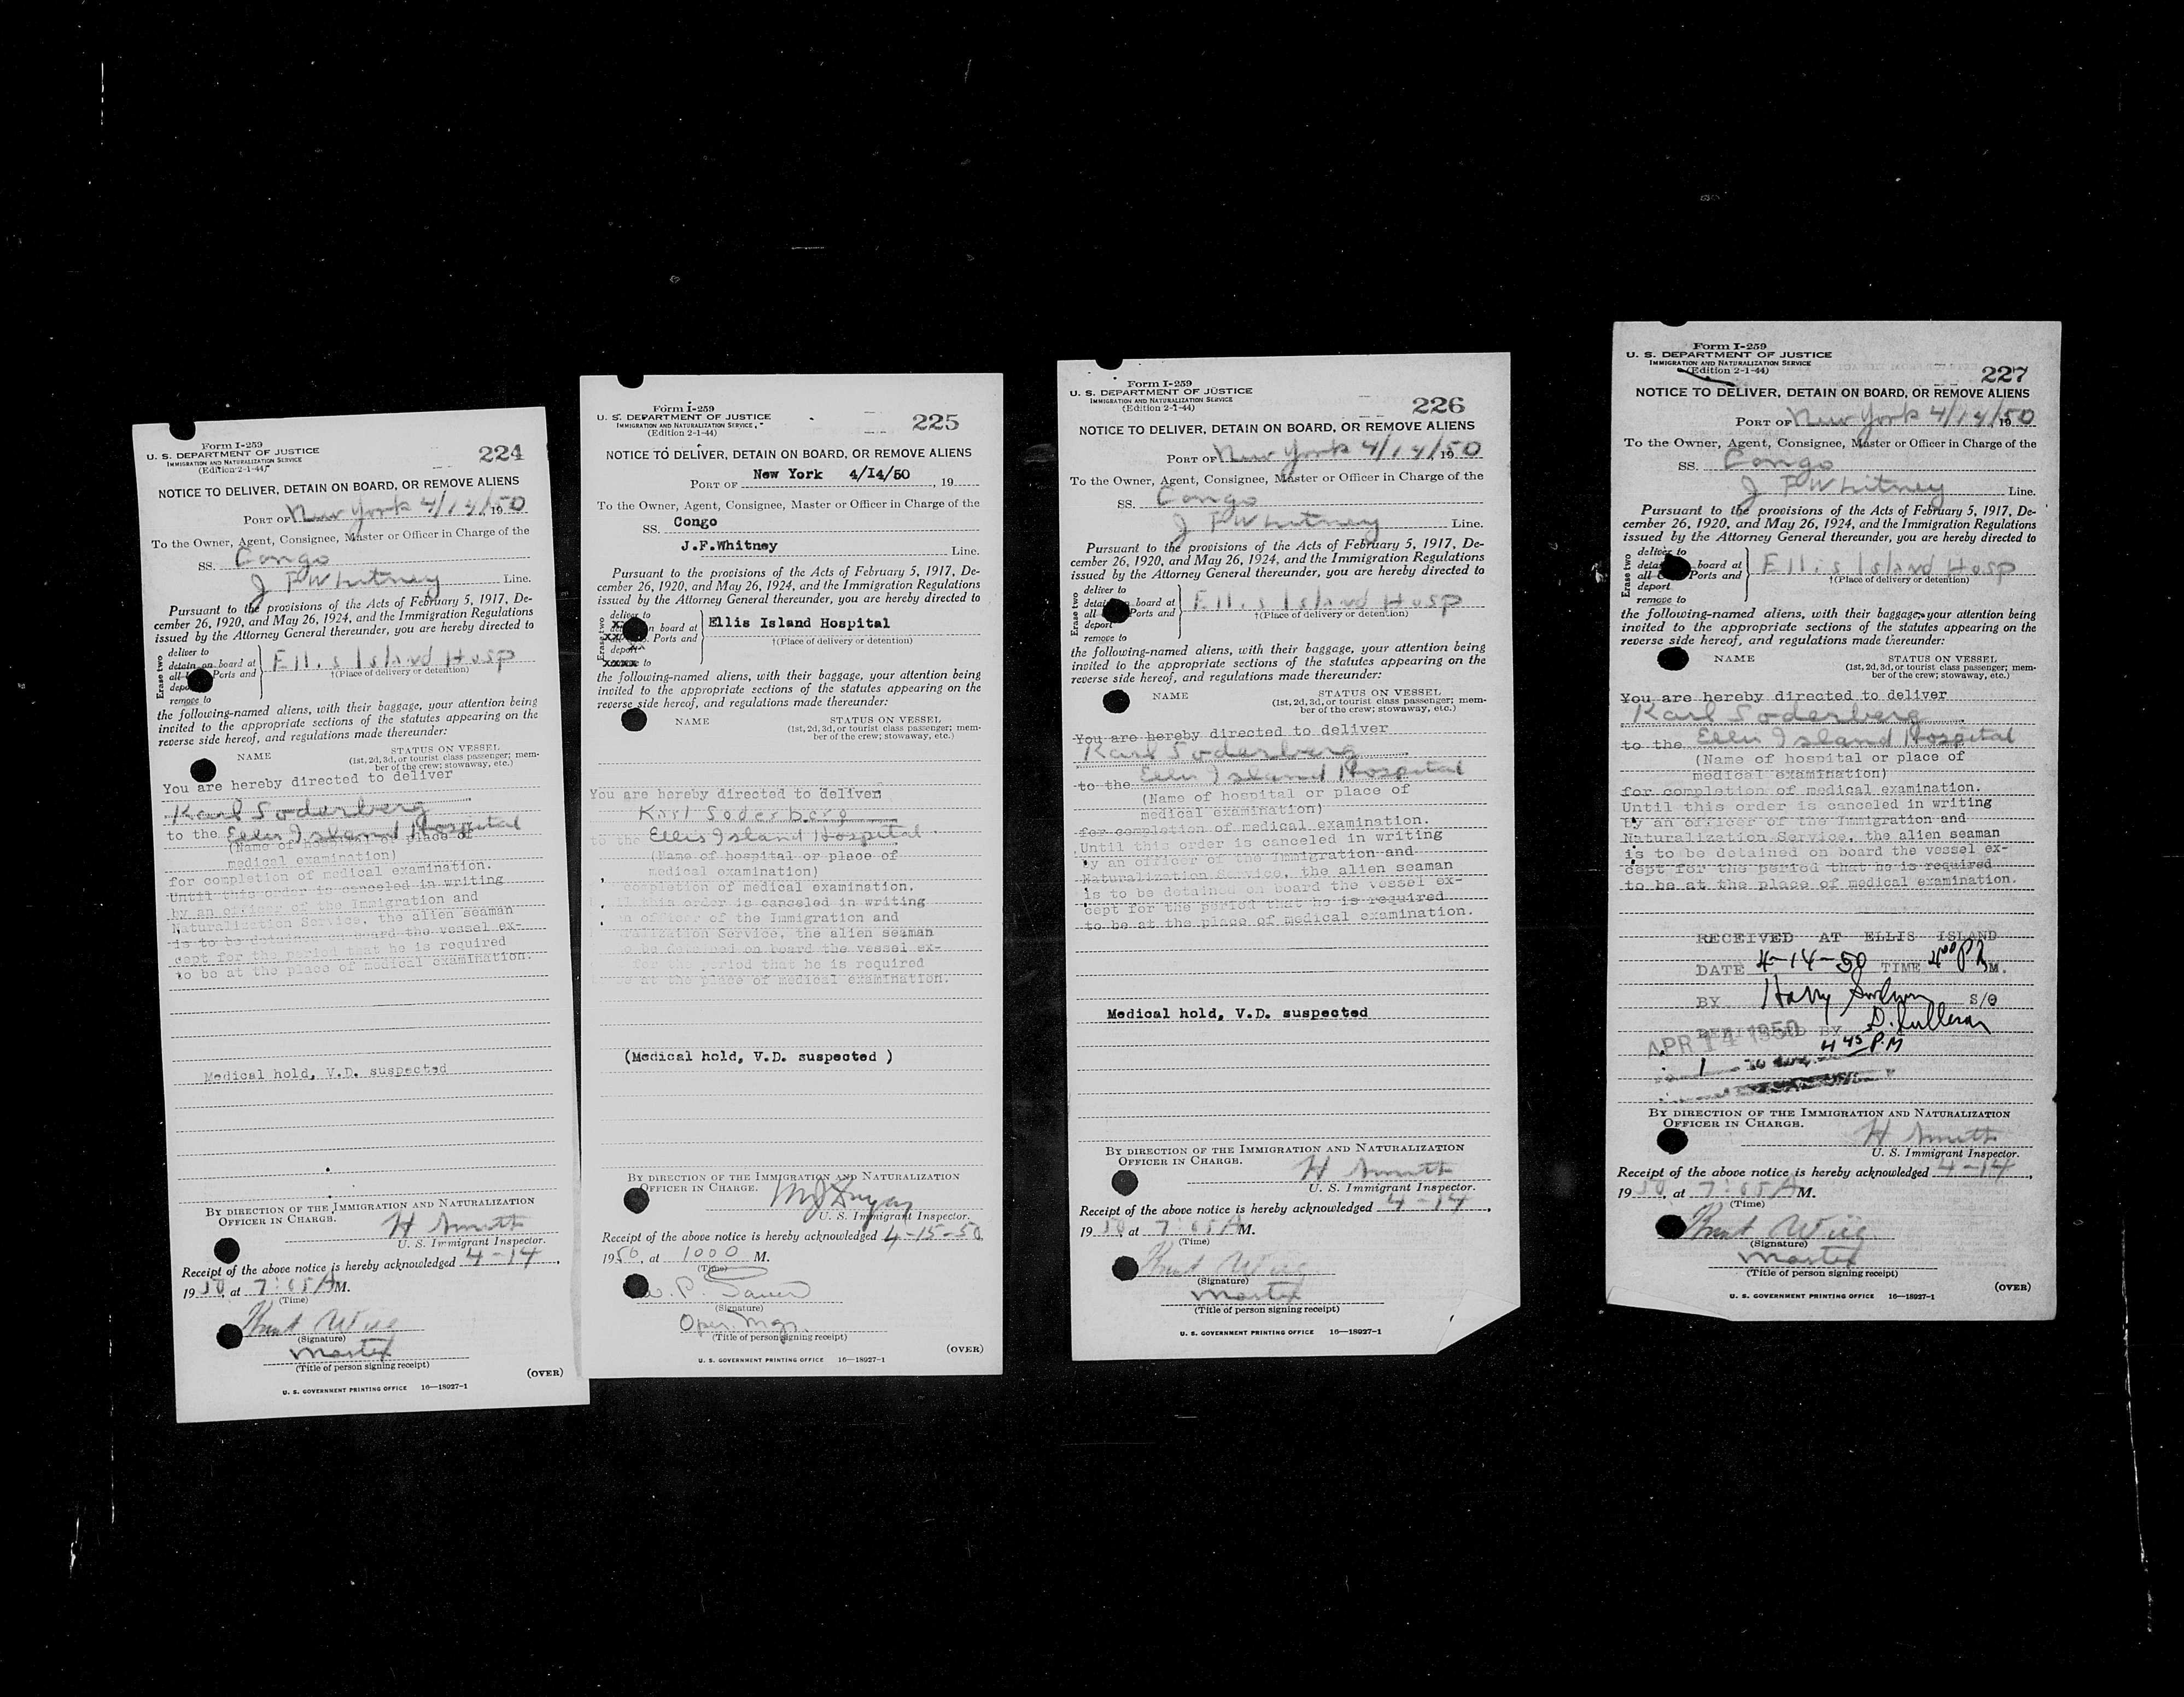 Form I-259
U. S. DEPARTMENT OF JUSTICE
IMMIGRATION AND NATURALIZATION SERVICE
(Edition 2-1-44)
224
NOTICE TO DELIVER, DETAIN ON BOARD, OR REMOVE ALIENS
PORT OF New York 4/14/1950
To the Owner, Agent, Consignee, Master or Officer in Charge of the
SS. Congo
J F Whitney Line.
Pursuant to the provisions of the Acts of February 5, 1917, De-
cember 26, 1920, and May 26, 1924, and the Immigration Regulations
issued by the Attorney General thereunder, you are hereby directed to
Erase two
deliver to
detain on board at
all Ports and
deport
remove to
Ellis Island Hosp
†(Place of delivery or detention)
the following-named aliens, with their baggage, your attention being
invited to the appropriate sections of the statutes appearing on the
reverse side hereof, and regulations made thereunder:
NAME
STATUS ON VESSEL
(1st, 2d, 3d, or tourist class passenger; mem-
ber of the crew; stowaway, etc.)
You are hereby directed to deliver
Karl Soderberg
to the Ellis Island Hospital
(Name of hospital or place of
medical examination)
for completion of medical examination.
Until this order is canceled in writing
by an officer of the Immigration and
Naturalization Service, the alien seaman
is to be detained on board the vessel ex-
cept for the period that he is required
to be at the place of medical examination.
Medical hold, V.D. suspected
BY DIRECTION OF THE IMMIGRATION AND NATURALIZATION
OFFICER IN CHARGE.
H Smith
U. S. Immigrant Inspector.
Receipt of the above notice is hereby acknowledged 4-14,
1950, at 7:05 A M.
(Time)
(Signature)
Master
(Title of person signing receipt)
(OVER)
U. S. GOVERNMENT PRINTING OFFICE 16—18927-1
Form I-259
U. S. DEPARTMENT OF JUSTICE
IMMIGRATION AND NATURALIZATION SERVICE
(Edition 2-1-44)
225
NOTICE TO DELIVER, DETAIN ON BOARD, OR REMOVE ALIENS
PORT OF New York 4/I4/50, 19
To the Owner, Agent, Consignee, Master or Officer in Charge of the
SS. Congo
J.F.Whitney Line.
Pursuant to the provisions of the Acts of February 5, 1917, De-
cember 26, 1920, and May 26, 1924, and the Immigration Regulations
issued by the Attorney General thereunder, you are hereby directed to
Erase two
deliver to
on board at
Ports and
deport
xxxx to
Ellis Island Hospital
†(Place of delivery or detention)
the following-named aliens, with their baggage, your attention being
invited to the appropriate sections of the statutes appearing on the
reverse side hereof, and regulations made thereunder:
NAME
STATUS ON VESSEL
(1st, 2d, 3d, or tourist class passenger; mem-
ber of the crew; stowaway, etc.)
You are hereby directed to deliver
Karl Soderberg
to the Ellis Island Hospital
(Name of hospital or place of
medical examination)
completion of medical examination.
this order is canceled in writing
an officer of the Immigration and
Naturalization Service, the alien seaman
to be detained on board the vessel ex-
for the period that he is required
to be at the place of medical examination.
(Medical hold, V.D. suspected )
BY DIRECTION OF THE IMMIGRATION AND NATURALIZATION
OFFICER IN CHARGE.
U. S. Immigrant Inspector.
Receipt of the above notice is hereby acknowledged 4-15-50,
1950, at 1000 M.
(Time)
W. P. Sauer
(Signature)
Oper. Mgr.
(Title of person signing receipt)
(OVER)
U. S. GOVERNMENT PRINTING OFFICE 16—18927-1
Form I-259
U. S. DEPARTMENT OF JUSTICE
IMMIGRATION AND NATURALIZATION SERVICE
(Edition 2-1-44)
226
NOTICE TO DELIVER, DETAIN ON BOARD, OR REMOVE ALIENS
PORT OF New York 4/14/1950
To the Owner, Agent, Consignee, Master or Officer in Charge of the
SS. Congo
J F Whitney Line.
Pursuant to the provisions of the Acts of February 5, 1917, De-
cember 26, 1920, and May 26, 1924, and the Immigration Regulations
issued by the Attorney General thereunder, you are hereby directed to
Erase two
deliver to
detain board at
all Ports and
deport
remove to
Ellis Island Hosp
†(Place of delivery or detention)
the following-named aliens, with their baggage, your attention being
invited to the appropriate sections of the statutes appearing on the
reverse side hereof, and regulations made thereunder:
NAME
STATUS ON VESSEL
(1st, 2d, 3d, or tourist class passenger; mem-
ber of the crew; stowaway, etc.)
You are hereby directed to deliver
Karl Soderberg
to the Ellis Island Hospital
(Name of hospital or place of
medical examination)
for completion of medical examination.
Until this order is canceled in writing
by an officer of the Immigration and
Naturalization Service, the alien seaman
is to be detained on board the vessel ex-
cept for the period that he is required
to be at the place of medical examination.
Medical hold, V.D. suspected
BY DIRECTION OF THE IMMIGRATION AND NATURALIZATION
OFFICER IN CHARGE.
H Smith
U. S. Immigrant Inspector.
Receipt of the above notice is hereby acknowledged 4-14,
1950, at 7:05 A M.
(Time)
(Signature)
Master
(Title of person signing receipt)
U. S. GOVERNMENT PRINTING OFFICE 16—18927-1
Form I-259
U. S. DEPARTMENT OF JUSTICE
IMMIGRATION AND NATURALIZATION SERVICE
(Edition 2-1-44)
227
NOTICE TO DELIVER, DETAIN ON BOARD, OR REMOVE ALIENS
PORT OF New York 4/14/1950
To the Owner, Agent, Consignee, Master or Officer in Charge of the
SS. Congo
J F Whitney Line.
Pursuant to the provisions of the Acts of February 5, 1917, De-
cember 26, 1920, and May 26, 1924, and the Immigration Regulations
issued by the Attorney General thereunder, you are hereby directed to
Erase two
deliver to
detain board at
all Ports and
deport
remove to
Ellis Island Hosp
†(Place of delivery or detention)
the following-named aliens, with their baggage, your attention being
invited to the appropriate sections of the statutes appearing on the
reverse side hereof, and regulations made thereunder:
NAME
STATUS ON VESSEL
(1st, 2d, 3d, or tourist class passenger; mem-
ber of the crew; stowaway, etc.)
You are hereby directed to deliver
Karl Soderberg
to the Ellis Island Hospital
(Name of hospital or place of
medical examination)
for completion of medical examination.
Until this order is canceled in writing
by an officer of the Immigration and
Naturalization Service, the alien seaman
is to be detained on board the vessel ex-
cept for the period that he is required
to be at the place of medical examination.
RECEIVED AT ELLIS ISLAND
DATE 4-14-50 TIME 4 00 P M.
BY Harry S/O
BY
APR 14 1950
4 45 P.M
BY DIRECTION OF THE IMMIGRATION AND NATURALIZATION
OFFICER IN CHARGE.
H Smith
U. S. Immigrant Inspector.
Receipt of the above notice is hereby acknowledged 4-14,
1950, at 7:05 A M.
(Time)
(Signature)
Master
(Title of person signing receipt)
(OVER)
U. S. GOVERNMENT PRINTING OFFICE 16—18927-1